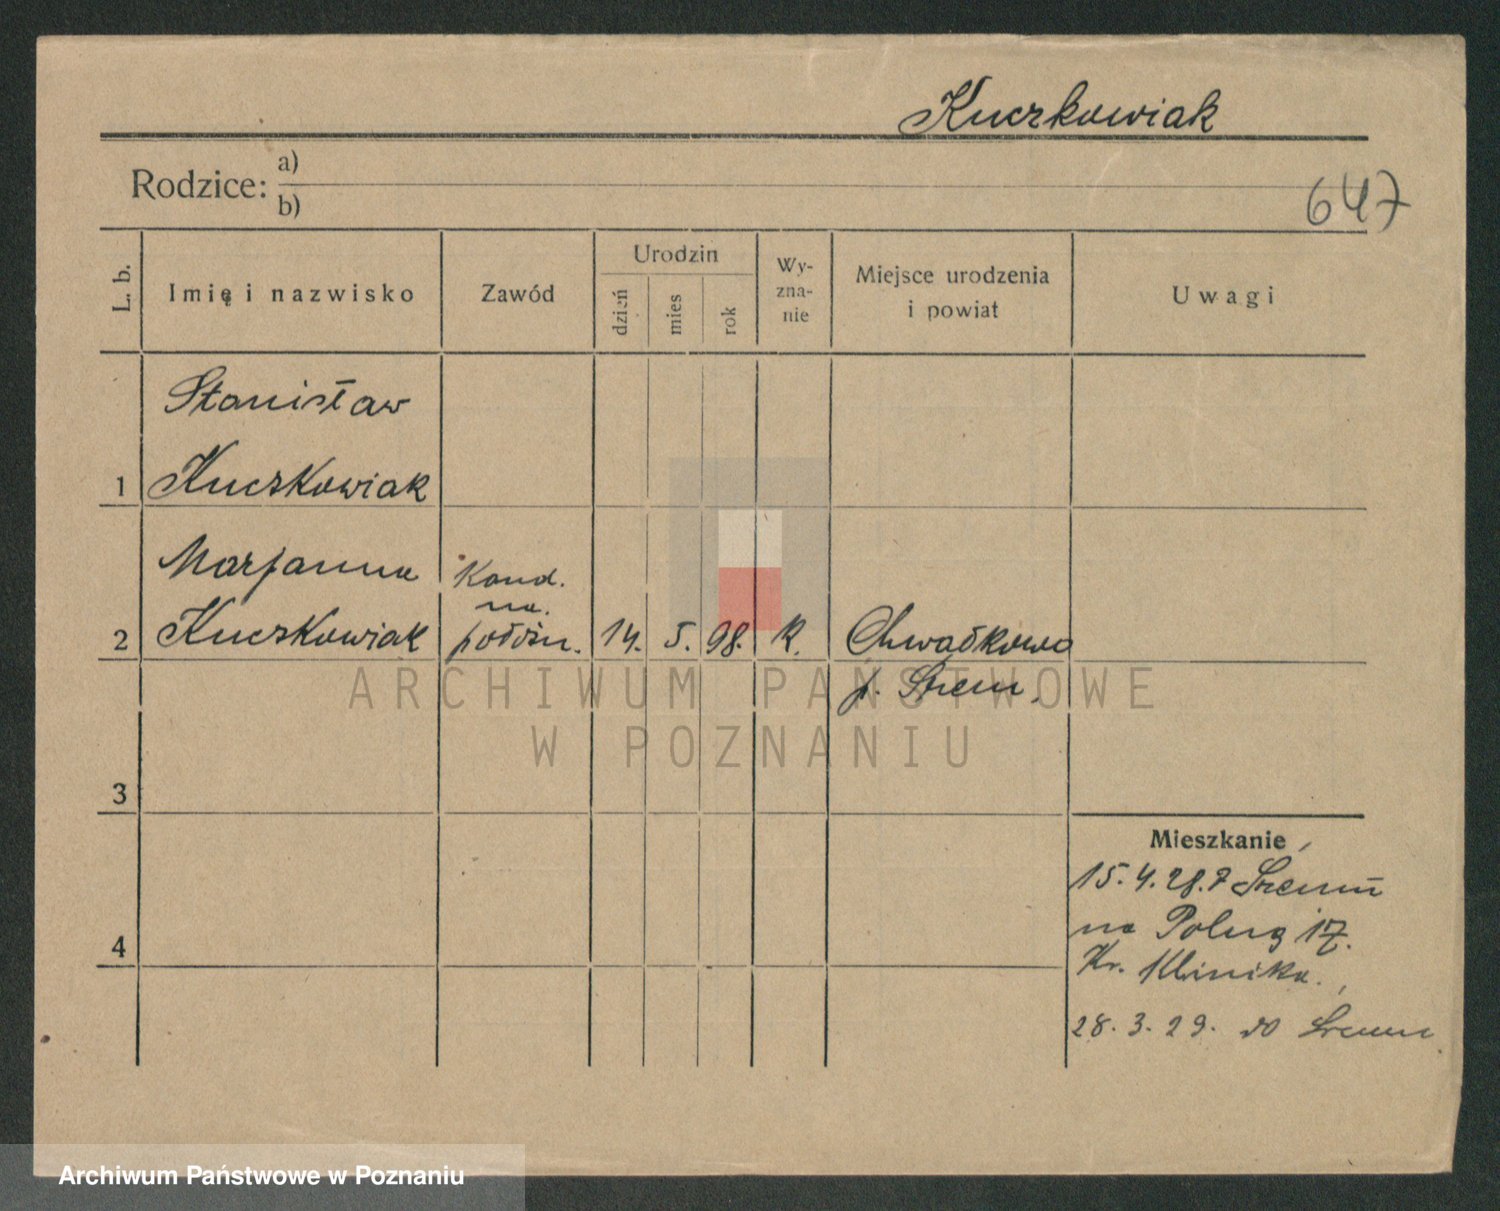 Kuczkowiak
Rodzice: a)
b)
647
L. b.
Imię i nazwisko
Zawód
Urodzin
dzień
mies
rok
Wy-
zna-
nie
Miejsce urodzenia
i powiat
Uwagi
Stanisław
1 Kuczkowiak
Marjanna Kand.
na.
2 Kuczkowiak położn. 14. 5. 98. k. Chwałkowo
p. Śrem.
ARCHIWUM PAŃSTWOWE
W POZNANIU
3
Mieszkanie
15.4.28. z Śremu
na Polną 17.
4
Kr. Klinika.
28.3.29. do Śremu
Archiwum Państwowe w Poznaniu